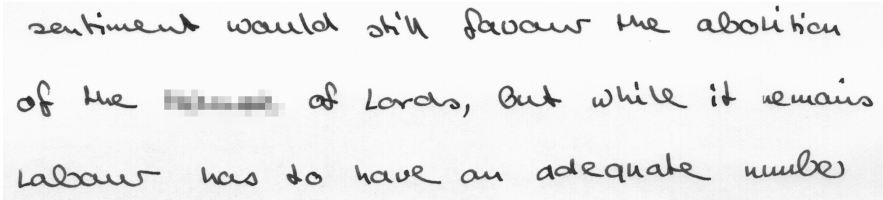 sentiment would still favour the abolition
of the of Lords, but while it remains
Labour has to have an adequate number